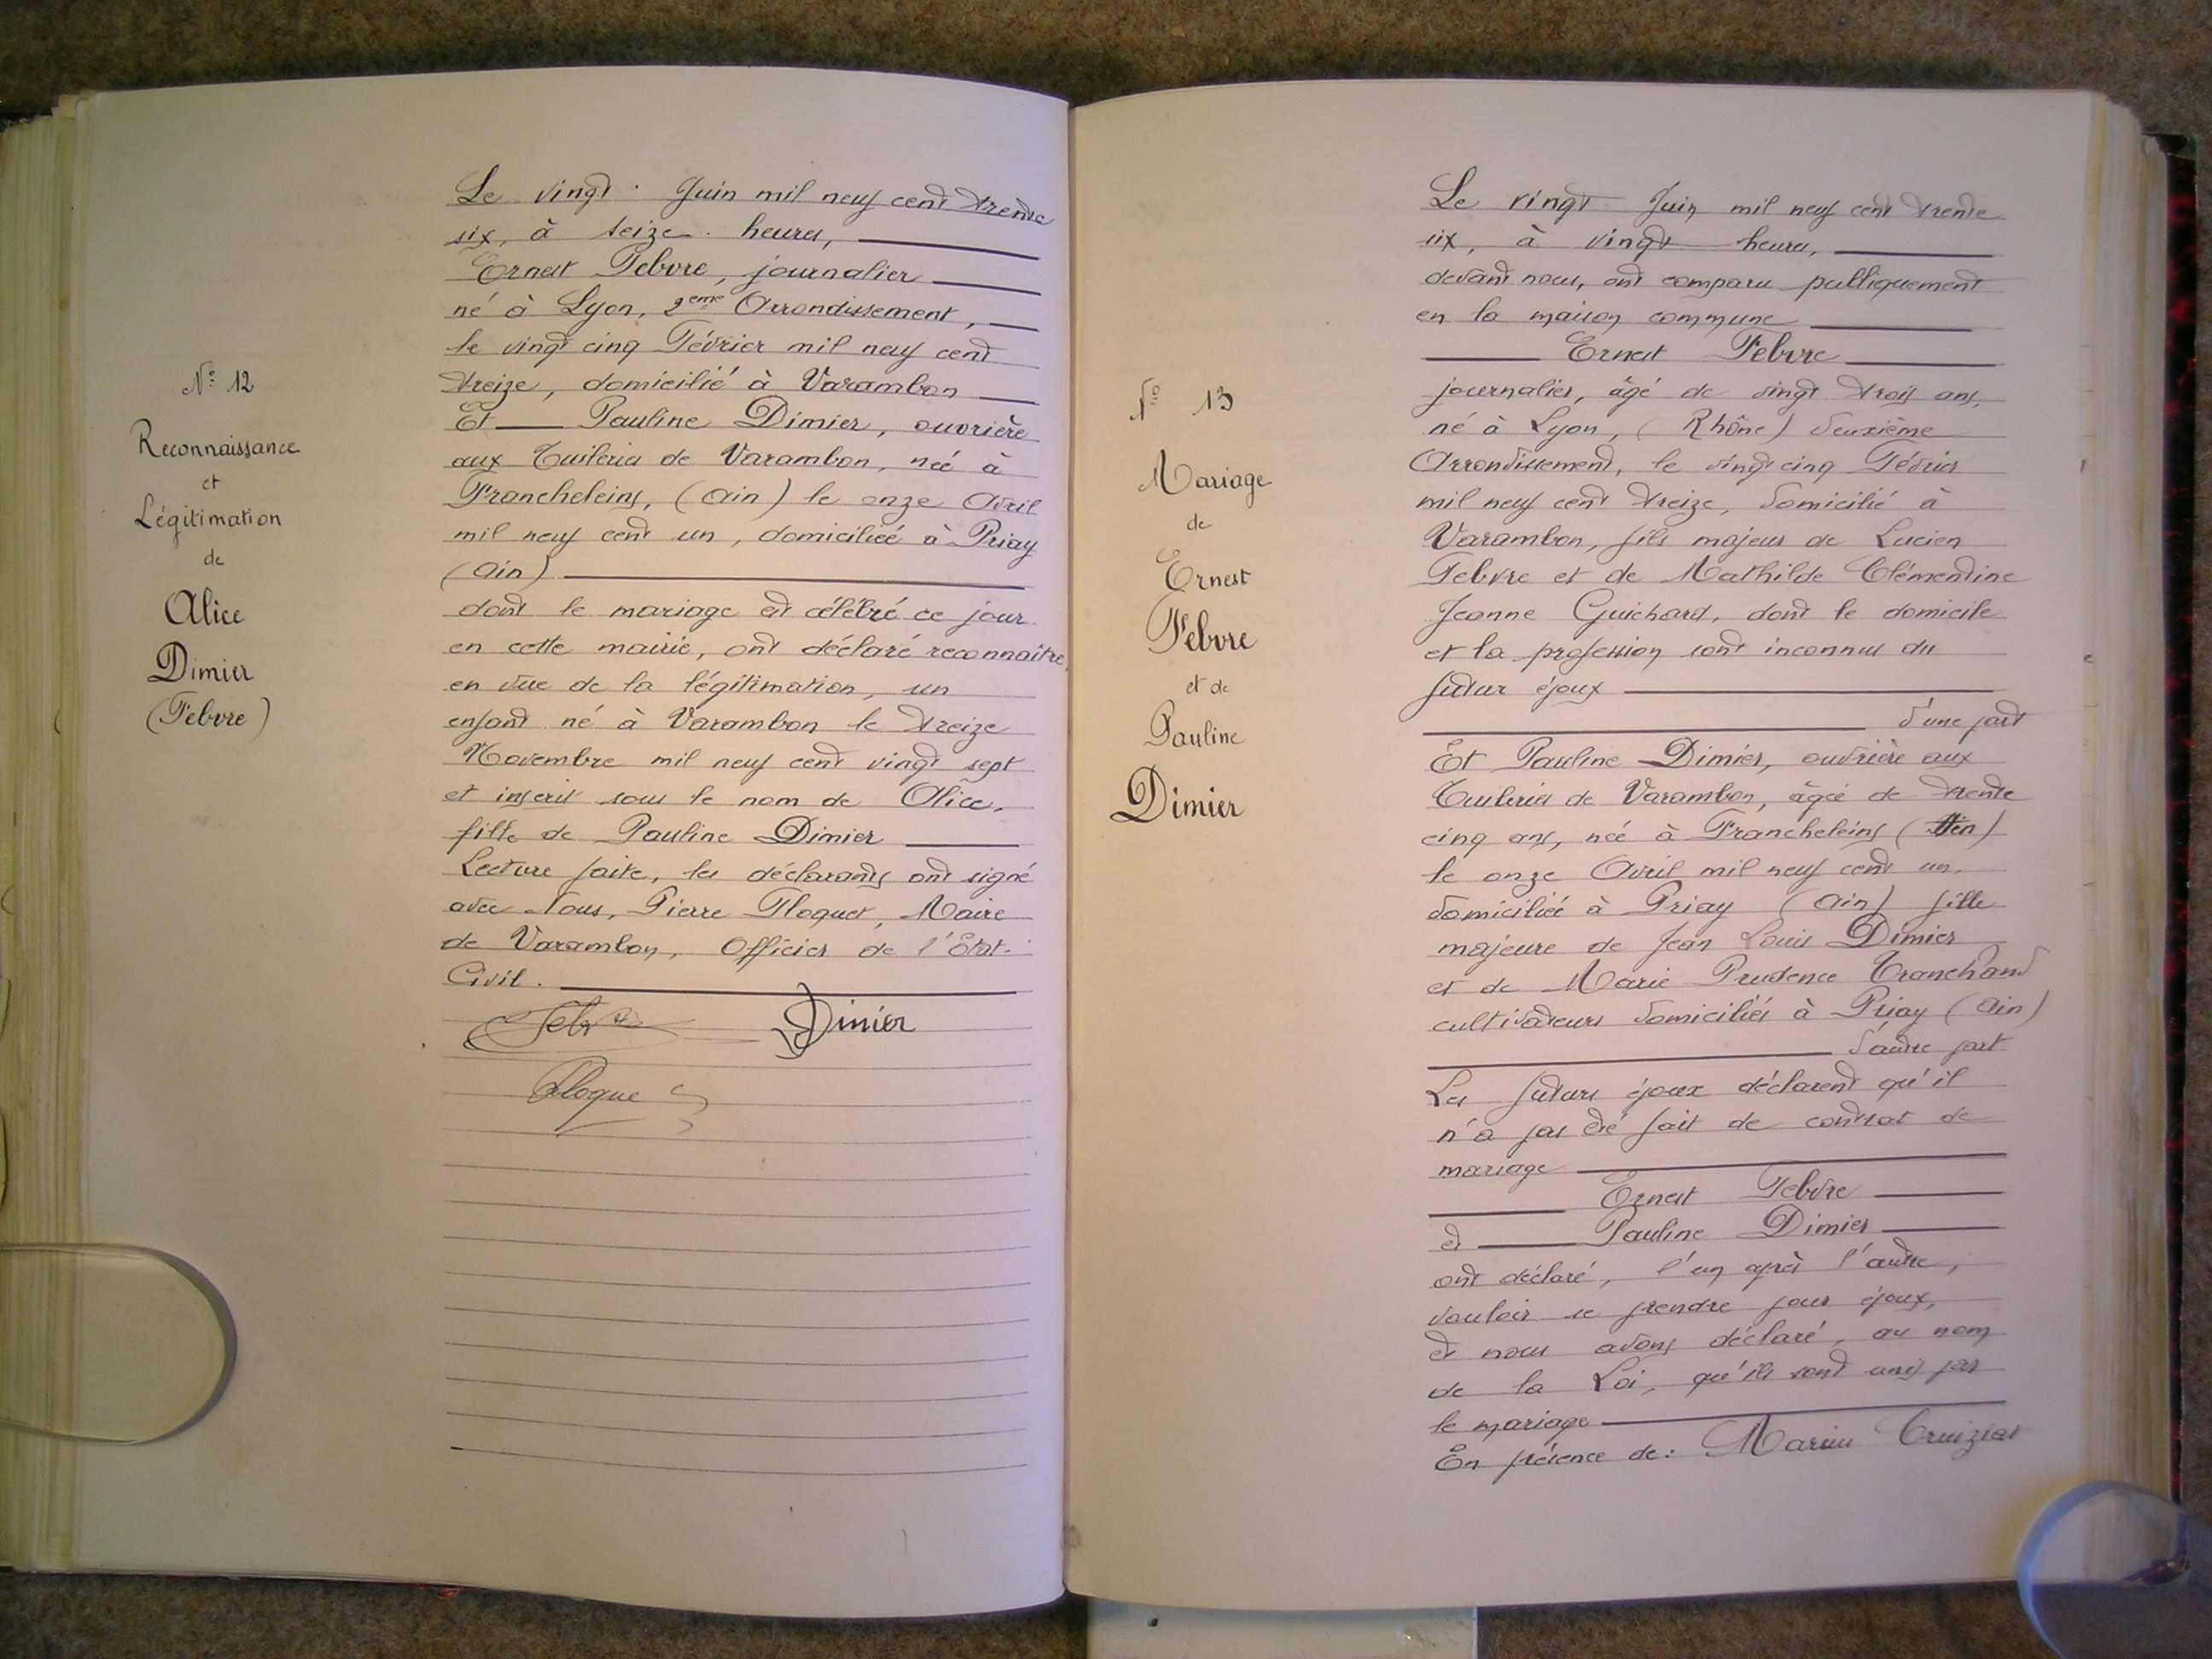 N° 12
Reconnaissance
et
Légitimation
de
Alice
Dimier
(Febvre)
Le vingt Juin mil neuf cent trente
six, à seize heures,
Ernest Febvre, journalier
né à Lyon, 2eme Arrondissement,
le vingt cinq Février mil neuf cent
treize, domicilié à Varambon
Et Pauline Dimier, ouvrière
aux Tuileries de Varambon, née à
Francheleins, (Ain) le onze Avril
mil neuf cent un, domiciliée à Priay
(Ain)
dont le mariage est célébré ce jour
en cette mairie, ont déclaré reconnaitre,
en vue de la légitimation, un
enfant né à Varambon le treize
Novembre mil neuf cent vingt sept
et inscrit sous le nom de Alice,
fille de Pauline Dimier
Lecture faite, les déclarants ont signé
avec Nous, Pierre Floquet, Maire
de Varambon, Officier de l'Etat-
Civil.
Febvre Dimier
Floquet
N° 13
Mariage
de
Ernest
Febvre
et de
Pauline
Dimier
Le vingt Juin mil neuf cent trente
six, à vingt heures,
devant nous, ont comparu publiquement
en la maison commune
Ernest Febvre
journalier, âgé de vingt trois ans,
né à Lyon, (Rhône) deuxième
Arrondissement, le vingt cinq Février
mil neuf cent treize, domicilié à
Varambon, fils majeur de Lucien
Febvre et de Mathilde Clémentine
Jeanne Guichard, dont le domicile
et la profession sont inconnus du
futur époux
d'une part
Et Pauline Dimier, ouvrière aux
Tuileries de Varambon, âgée de trente
cinq ans, née à Francheleins (Ain)
le onze Avril mil neuf cent un,
domiciliée à Priay (Ain) fille
majeure de Jean Louis Dimier
et de Marie Prudence Tranchand
cultivateurs domiciliés à Priay (Ain)
d'autre part
Les futurs époux déclarent qu'il
n'a pas été fait de contrat de
mariage
Ernest Febvre
et Pauline Dimier
ont déclaré, l'un après l'autre,
vouloir se prendre pour époux,
et nous avons déclaré, au nom
de la Loi, qu'ils sont unis par
le mariage
En présence de: Marius